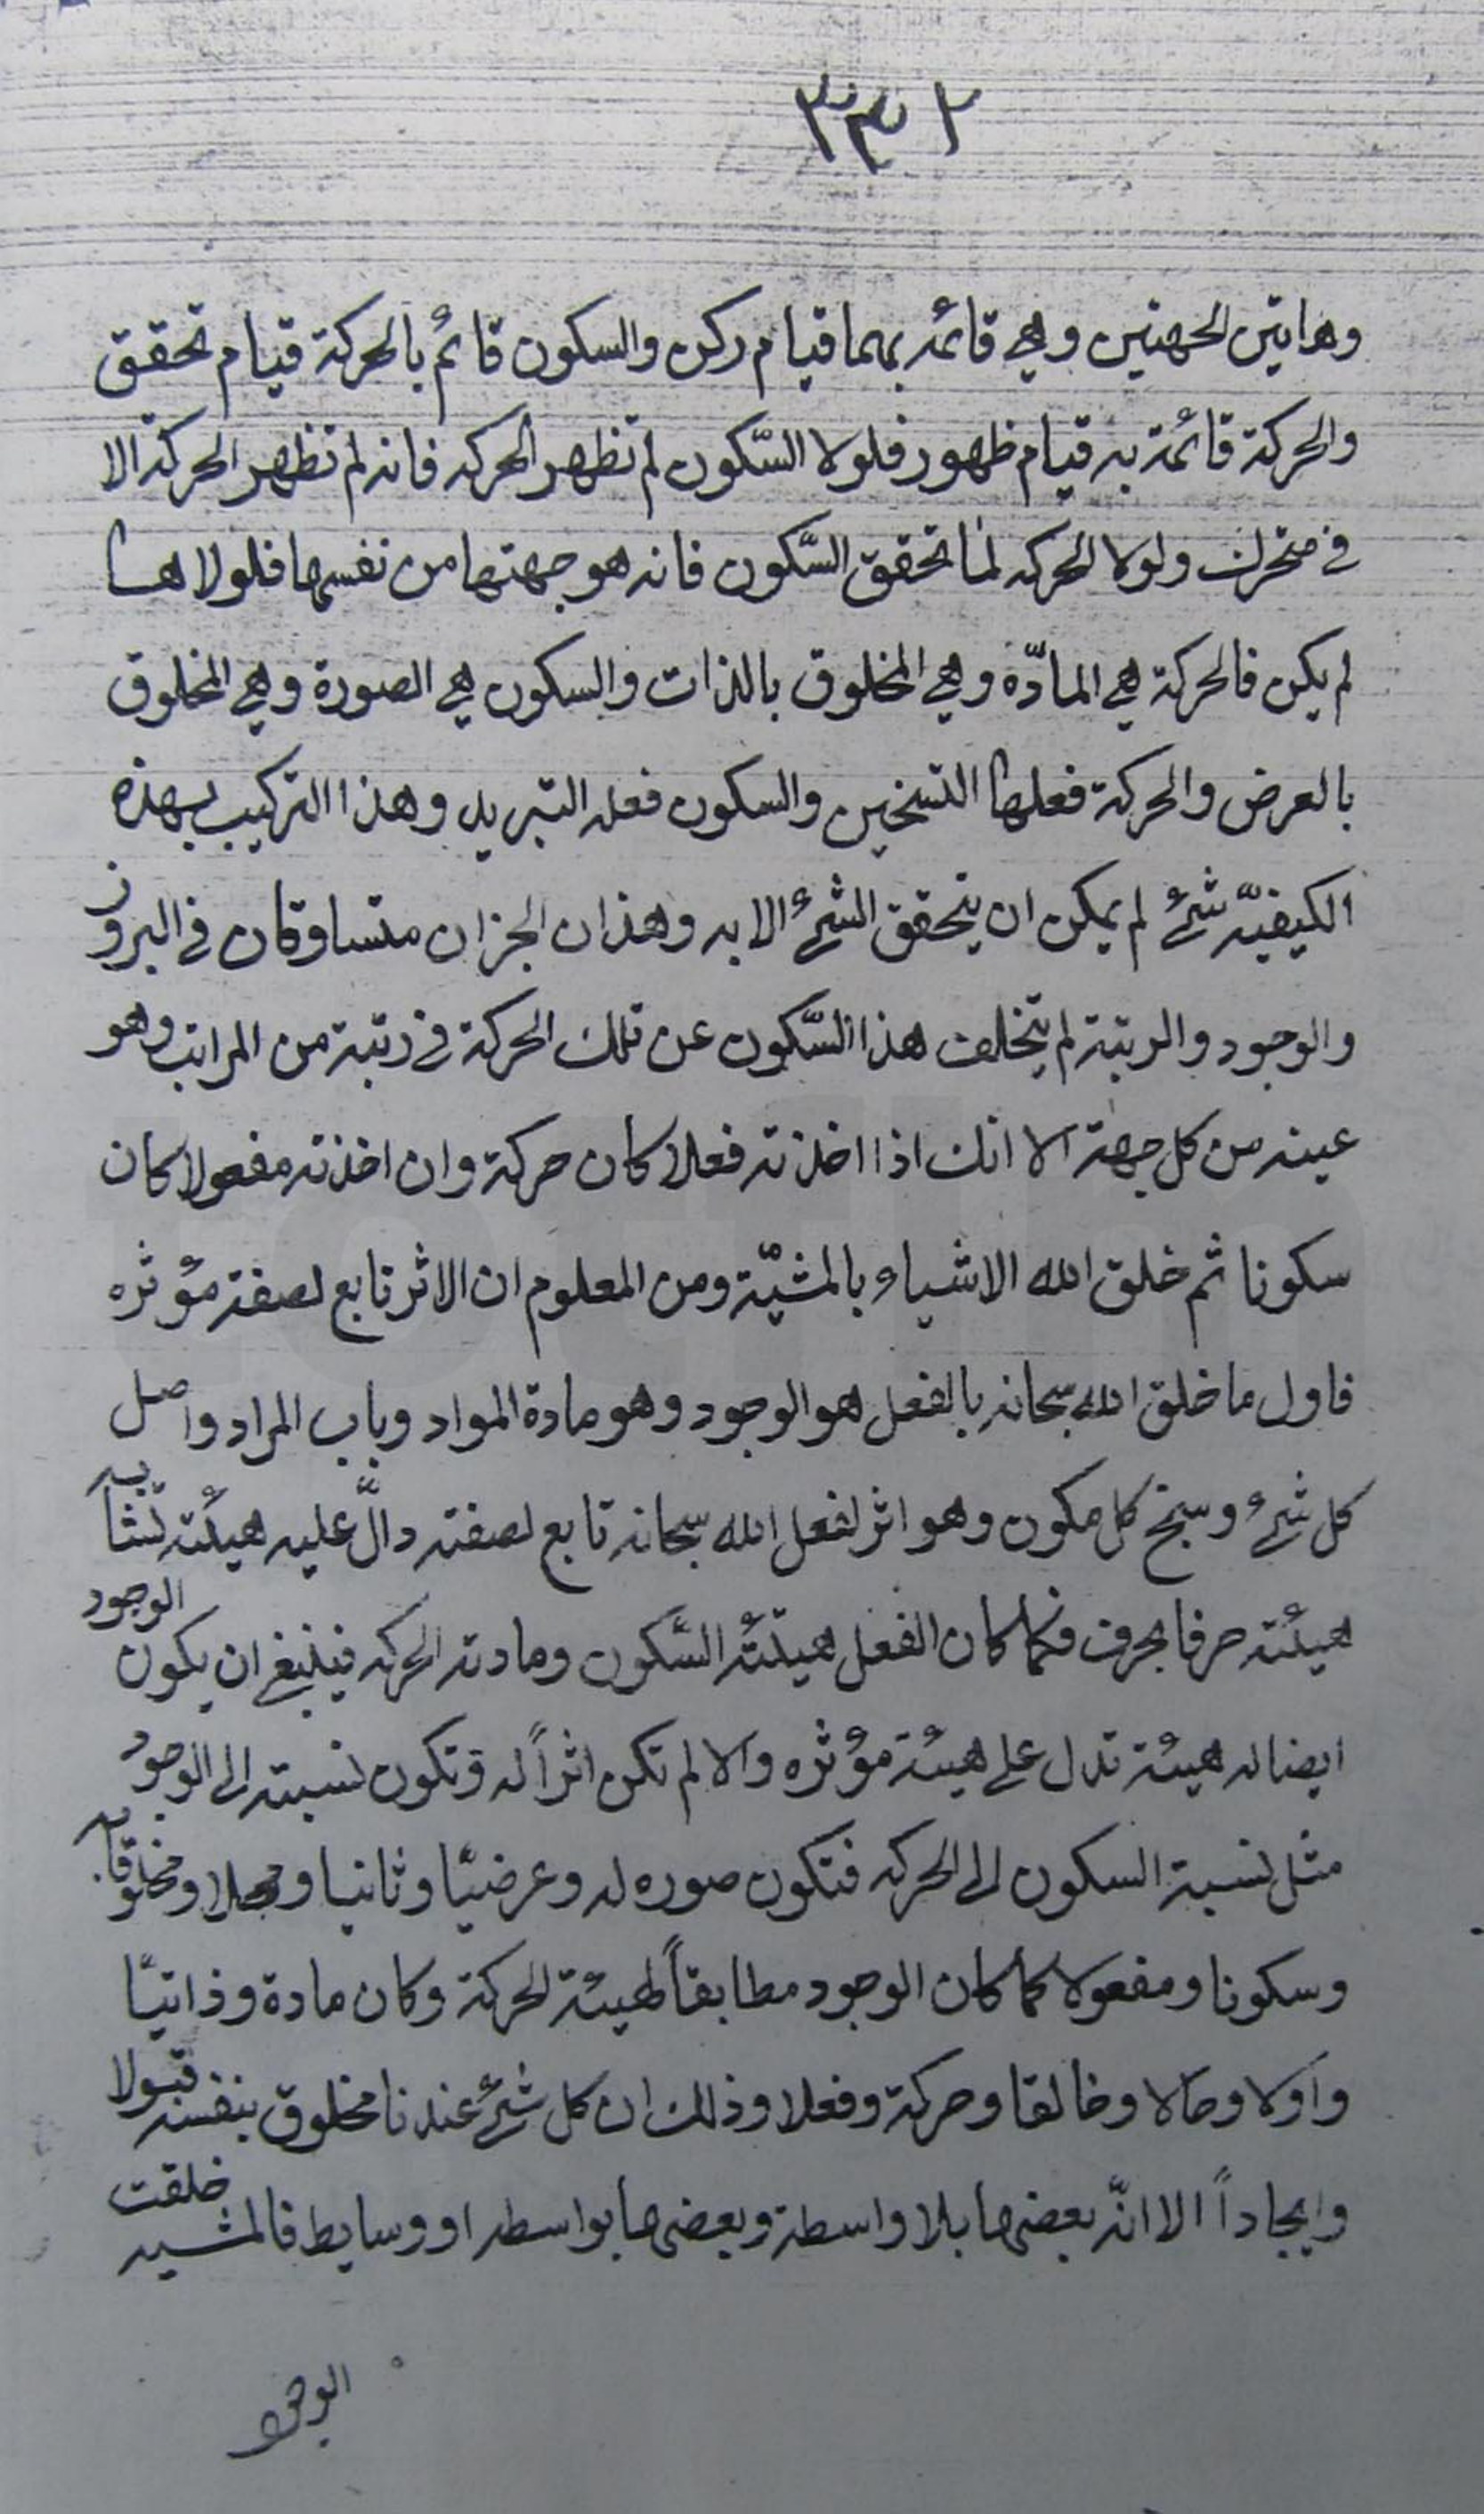 ٢٣٢
وهاتين الجهتين وهي قائمه بهما قيام ركن والسكون قائم بالحركة قيام تحقق
والحركة قائمة به قيام ظهور فلولا السّكون لم تظهر الحركه فانه لم تظهر الحركة الا
في متحرك ولولا الحركه لما تحقق السّكون فانه هو جهتها من نفسها فلولاها
لم يكن فالحركة هي المادّه وهي المخلوق بالذات والسكون هي الصورة وهي المخلوق
بالعرض والحركة فعلها التسخين والسكون فعله التبريد وهذا التركيب بهذه
الكيفيّه شئ لم يمكن ان يتحقق الشئ الا به وهذان الجزان متساوقان في البروز
والوجود والرتبة لم يتخلف هذا السّكون عن تلك الحركة في رتبة من المراتب وهو
عينه من كل جهة الا انك اذا اخذته فعلا كان حركة وان اخذته مفعولا كان
سكونا ثم خلق الله الاشياء بالمشيّة ومن المعلوم ان الاثر تابع لصفة مؤثره
فاول ما خلق الله سبحانه بالفعل هو الوجود وهو مادة المواد وباب المراد واصل
كل شئ وسنخ كل مكون وهو اثر لفعل الله سبحانه تابع لصفته دالّ عليه هيئته تشابه
هيئته حرفا بحرف فكما كان الفعل هيئته السّكون ومادته الحركه فينبغي ان يكون الوجود
ايضا له هيئة تدل على هيئة مؤثره والا لم تكن اثراً له وتكون نسبته الى الوجود
مثل نسبة السكون الى الحركه فتكون صوره له وعرضيّا وثانيا ومحلا ومخلوقا به
وسكونا ومفعولا كما كان الوجود مطابقاً لهيئة الحركة وكان مادة وذاتيّا
واولا وحالا وخالقا وحركة وفعلا وذلك ان كل شئ عندنا مخلوق بنفسه قبولا
وايجاداً الا انّ بعضها بلا واسطة وبعضها بواسطه او وسايط فالمشيه خلقت